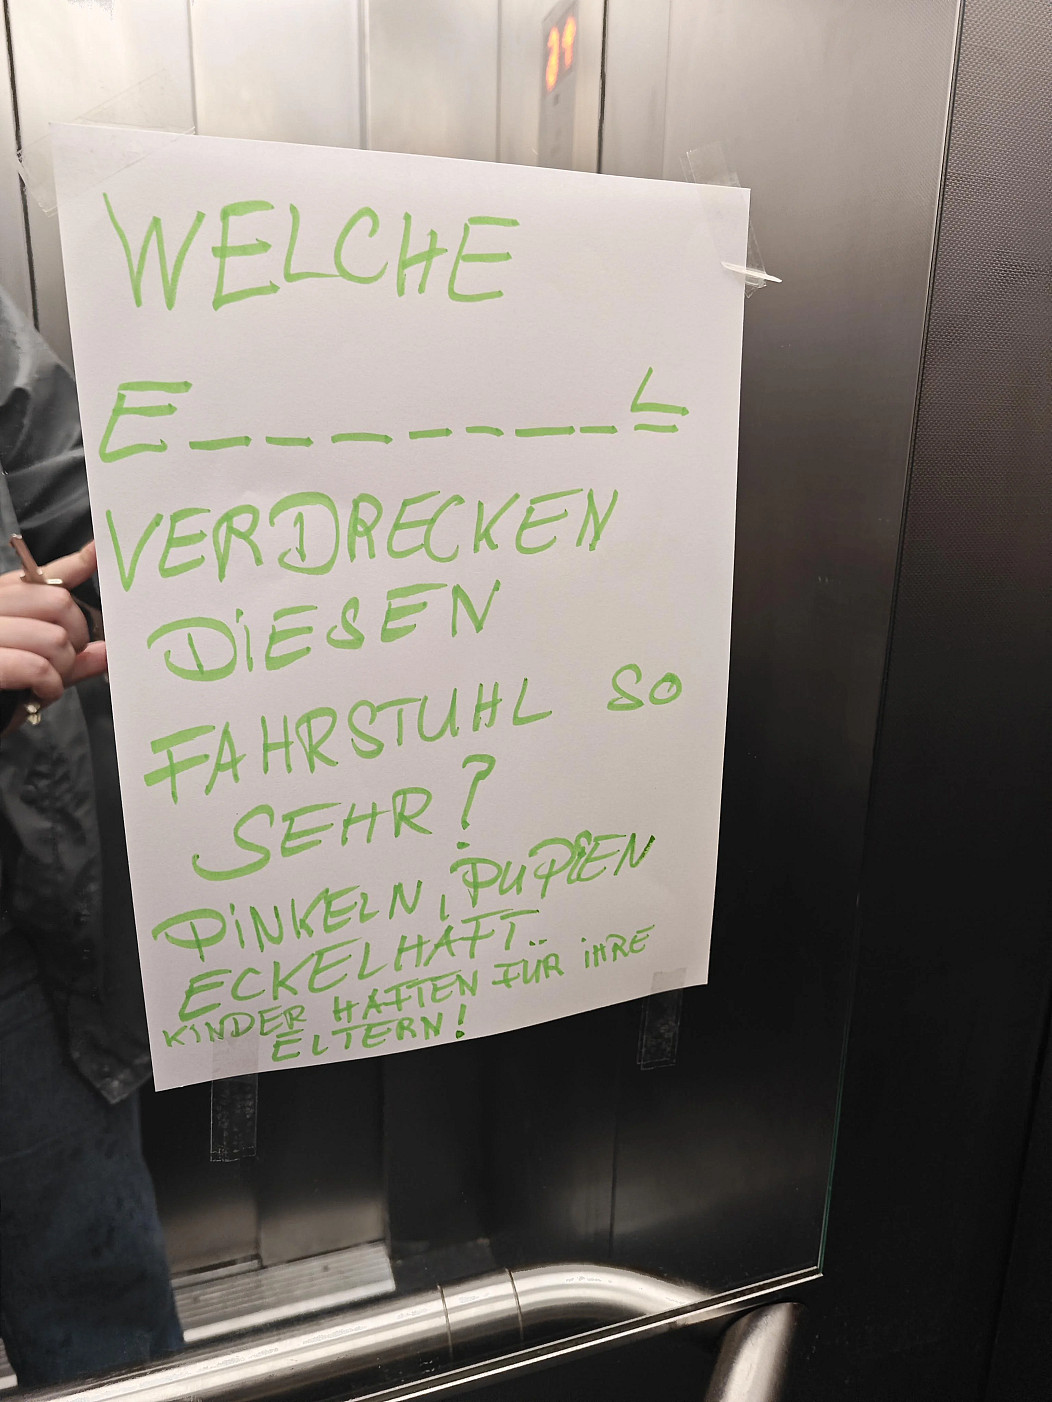 WELCHE
E_ _ _ _ _ _ _L
VERDRECKEN
DIESEN
FAHRSTUHL SO
SEHR?
PINKELN, PUPSEN
ECKELHAFT..
KINDER HAFTEN FÜR IHRE
ELTERN!